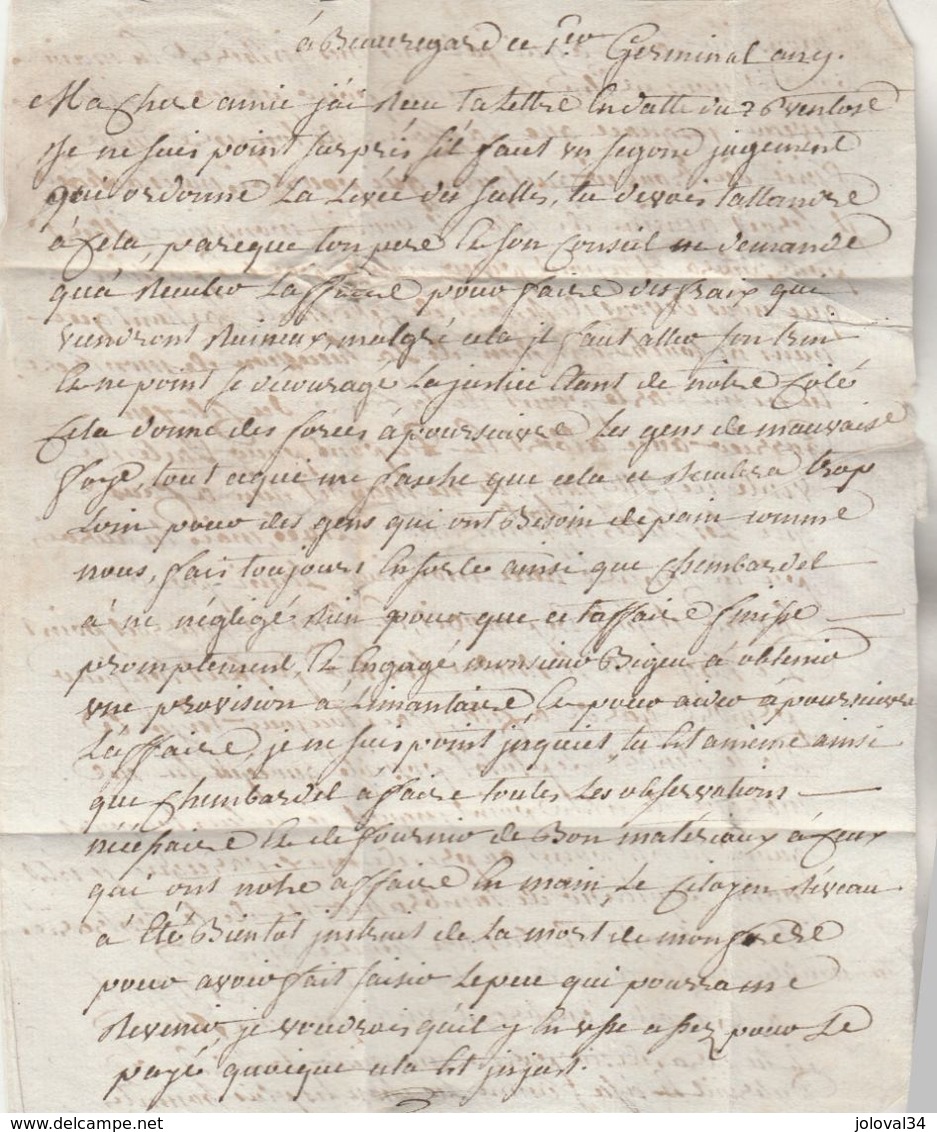 à Beauregard ce 1er Germinal an 9.
Ma chere amie j'ai Receu ta Lettre En datte du 26 ventose
Je ne suis point surpris s'il faut un segond jugement
qui ordonne La Levée des sellés, tu devois tattandre
à cela, parceque ton pere Et son Conseil ne demande
qu'à Reculer L'affaire pour faire des fraix qui
viendront Ruineux, malgré cela il faut aller son trin
Et ne point se découragé La justice Etant de notre Coté
Cela donne des forces à poursuivre Les gens de mauvaise
foye, tout ce qui me fasche que cela ce Reculera trop
Loin pour des gens qui ont Besoin de pain comme
nous, fais toujours Ensorte ainsi que Chembardel
à ne négligé Rien pour que cet affaire finisse
promptement, Et Engagé monsieur Bigeu à obtenir
une provision à Limantaire Et pour aider à poursuivre
L'affaire, je ne suis point inquiet, tu Est a meme ainsi
que Chembardel à faire toutes Les observations
nécessaire Et de fournir de Bon matériaux à Ceux
qui ont notre affaire En main, Le Citoyen Réveau
à Eté Bientot instruit de La mort de mon frere
pour avoir fait saisir Le peu qui pourra me
Revenir, je voudrois qu'il y En usse assez pour Le
payé, quoique cela Est injust.
joloval34
© delcampe.net